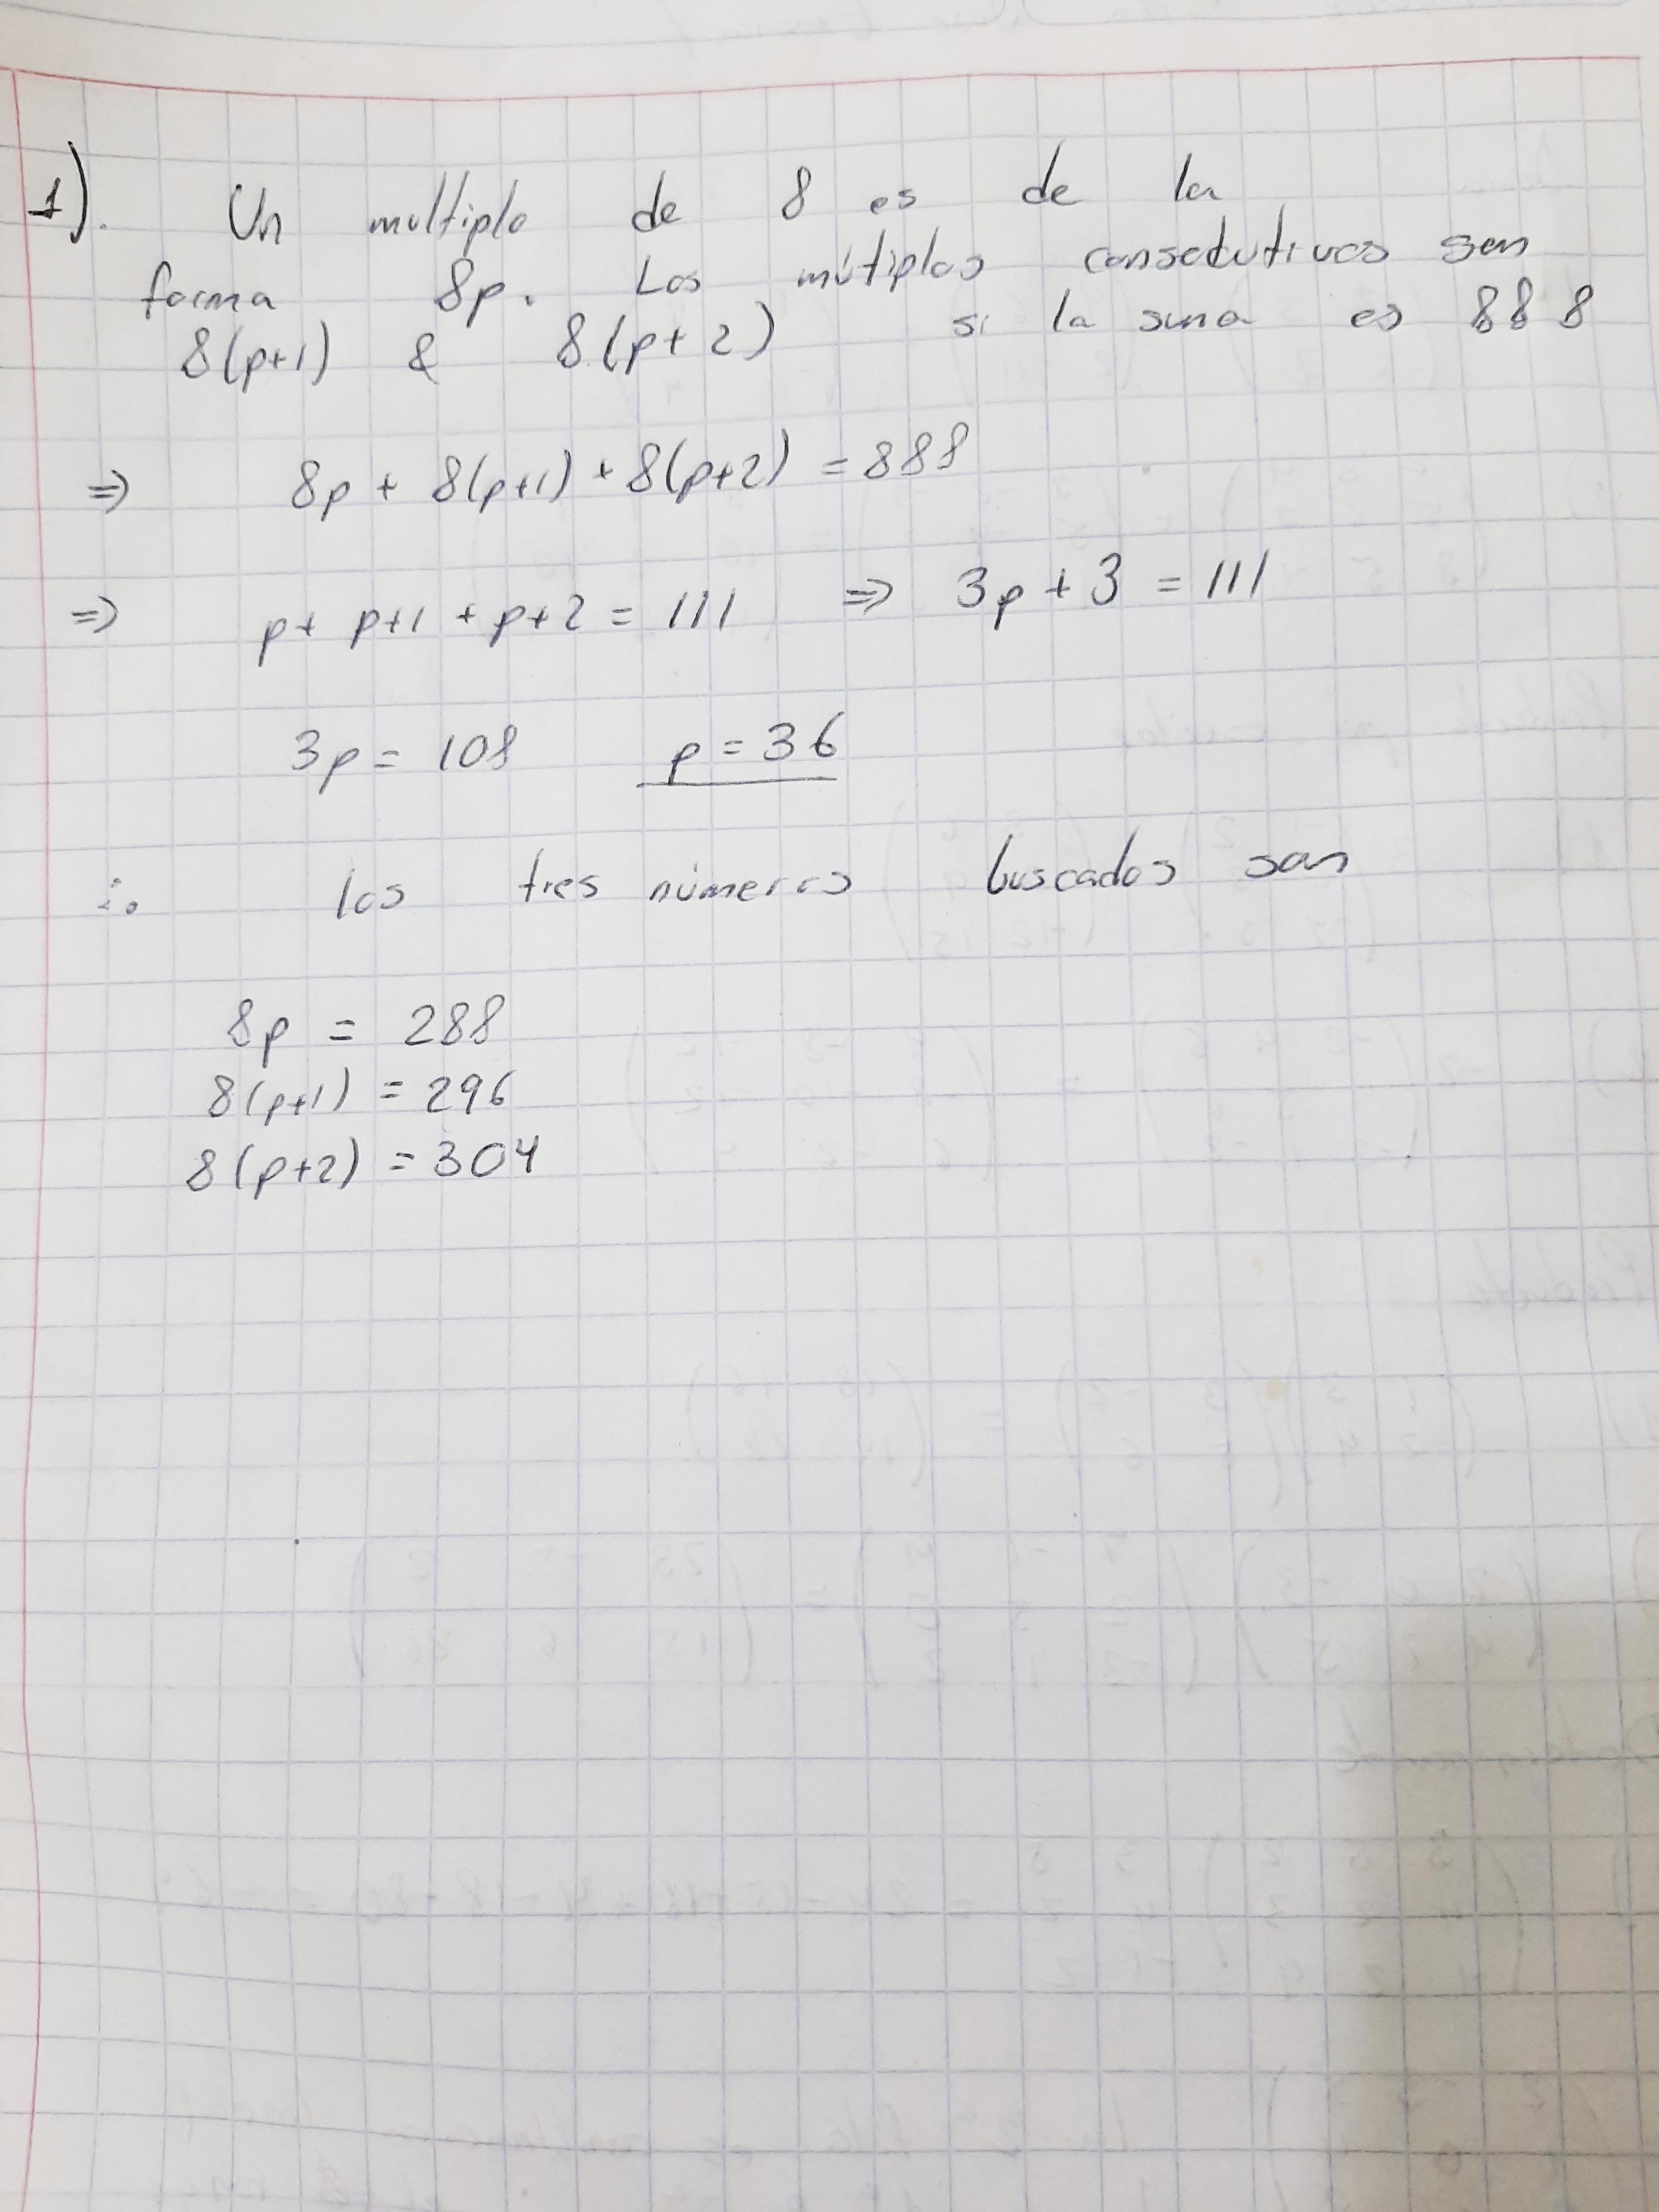 1). Un multiplo de 8 es de la
forma 8p. Los mútiplos consecutivos son
8(p+1) & 8(p+2) si la suma es 888
=> 8p + 8(p+1) + 8(p+2) = 888
=> p+ p+1 + p+2 = 111 => 3p + 3 = 111
3p = 108 p = 36
∴ los tres números buscados son
8p = 288
8(p+1) = 296
8(p+2) = 304